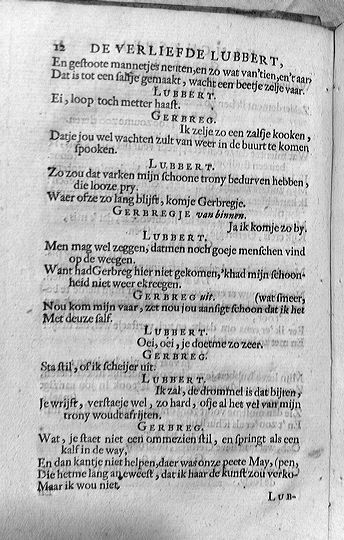 12 DE VERLIEFDE LUBBERT,
En gestoote mannetjes neuten, en zo wat van'tien, en't aar,
Dat is tot een salfje gemaakt, wacht een beetje zelje vaar.
LUBBERT.
Ei, loop toch metter haast.
GERBREG.
Ik zelje zo een zalfje kooken,
Datje jou wel wachten zult van weer in de buurt te komen
spooken.
LUBBERT.
Zo zou dat varken mijn schoone trony bedurven hebben,
die looze pry.
Waer ofze zo lang blijft, komje Gerbregje.
GERBREGJE van binnen.
Ja ik komje zo by.
LUBBERT.
Men mag wel zeggen, datmen noch goeje menschen vind
op de weegen.
Want had Gerbreg hier niet gekomen, 'k had mijn schoon-
heid niet weer ekreegen.
GERBREG uit. (wat smeer,
Nou kom mijn vaar, zet nou jou aansigt schoon dat ik het
Met deuze salf.
LUBBERT.
Oei, oei, je doetme zo zeer.
GERBREG.
Sta stil, of ik scheijer uit.
LUBBERT.
Ik zal, de drommel is dat bijten,
Je wrijft, verstaeje wel, zo hard, ofje al het vel van mijn
trony woudt afrijten.
GERBREG.
Wat, je staet niet een ommezien stil, en springt als een
kalf in de way,
En dan kantje niet helpen, daer was onze peete May, (pen,
Die hetme lang aneweest, dat ik haar de kunst zou verko-
Maar ik wou niet.
LUB-